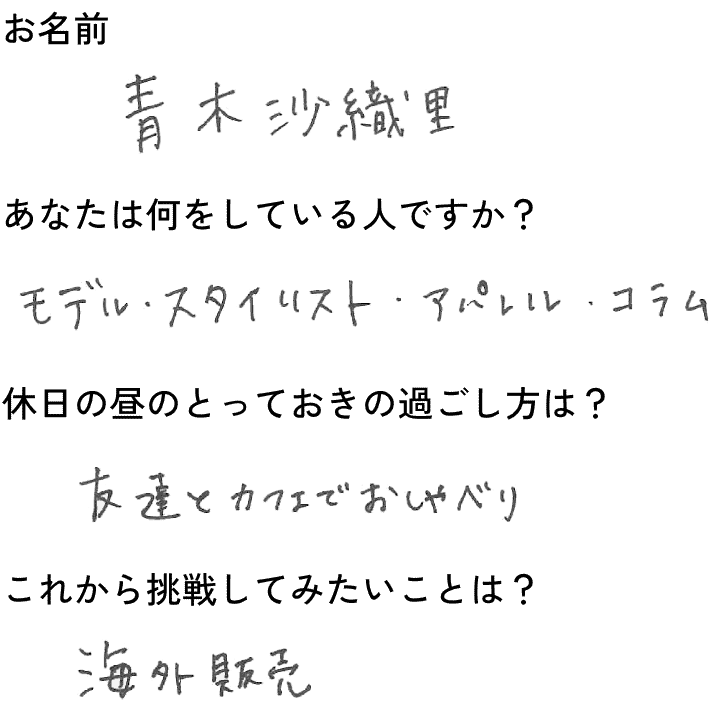 お名前
青木沙織里
あなたは何をしている人ですか？
モデル・スタイリスト・アパレル・コラム
休日の昼のとっておきの過ごし方は？
友達とカフェでおしゃべり
これから挑戦してみたいことは？
海外販売